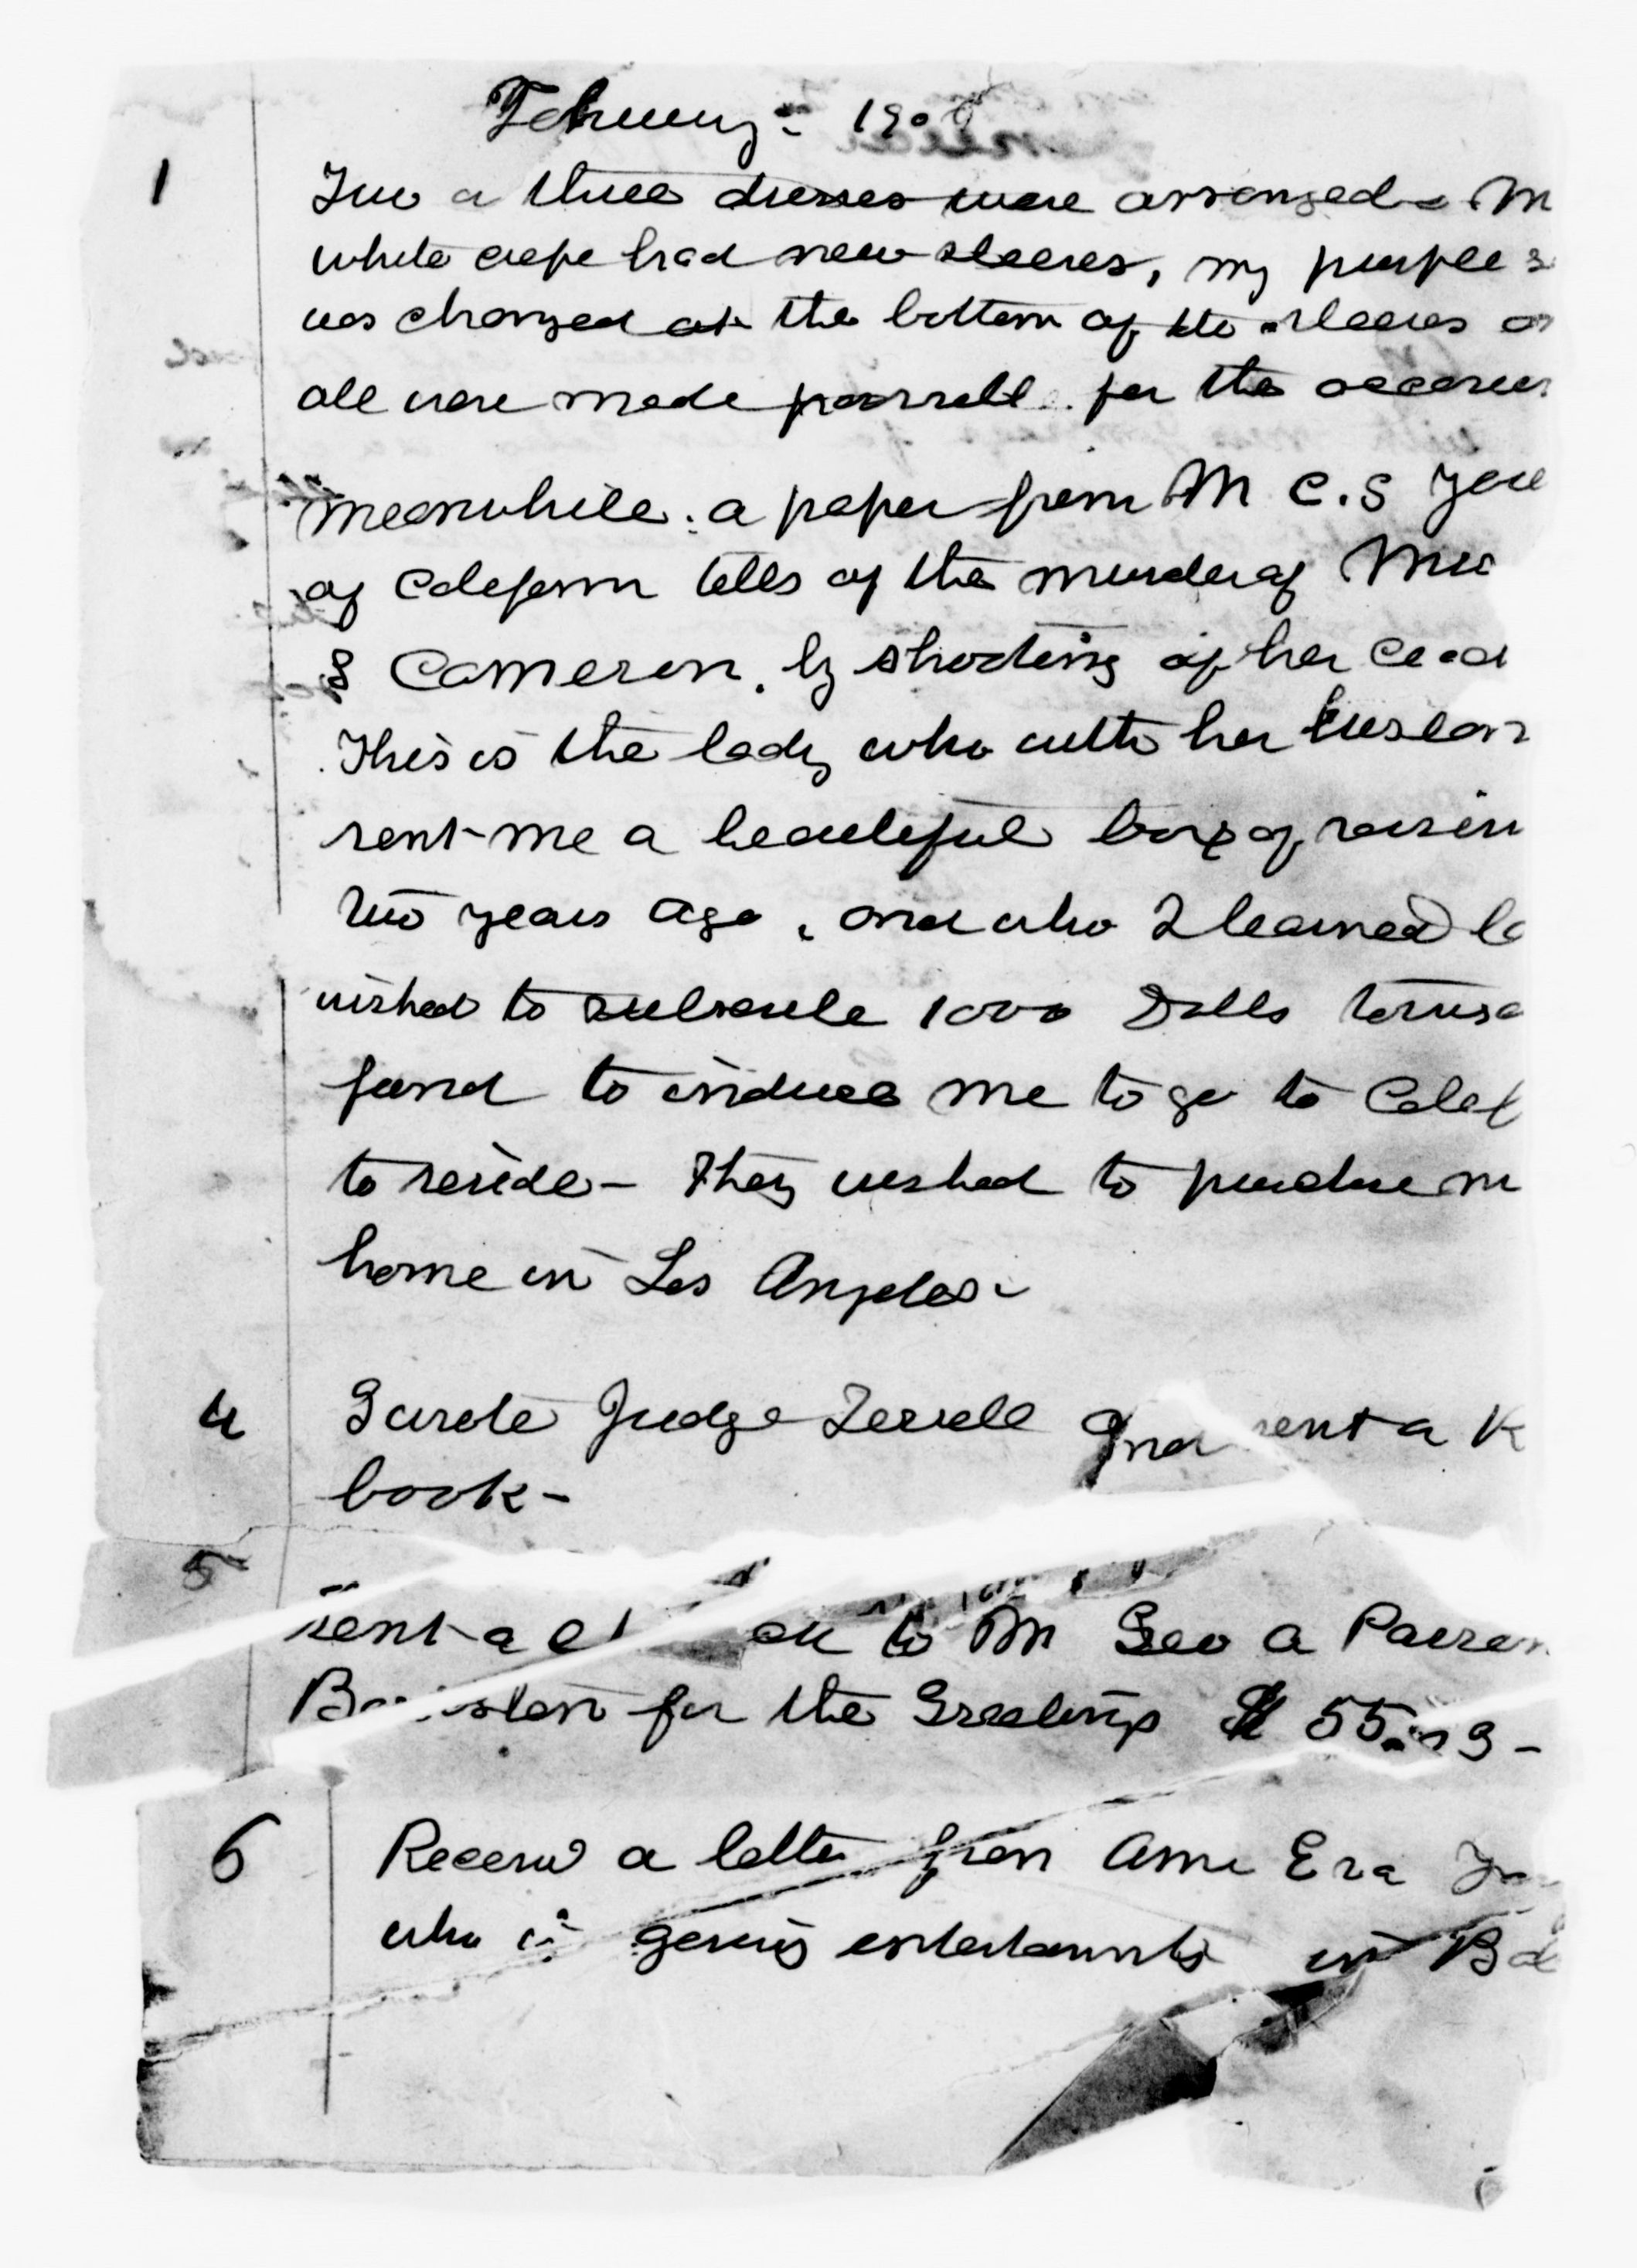 February - 190
1 Two or three dresses were arranged - M
white crepe had new sleeves, my purple s
was changed at the bottom of the sleeves a
all were made for the
Meanwhile. a paper from M C. S
of Californ tells of the murder of Mrs
S Cameron. by shooting of her
This is the lady who with her husban
sent me a beautiful box of raisin
two years ago, and who I learned
wished to subscribe 1000 Dolls
fund to induce me to go to Calif
to reside - They wished to purchase m
home in Los Angeles -
4 I wrote Judge Terrell and sent a K
book -
5
sent a ck to Mr Geo A
for the Greetings $ 55.
6 Received a letter from Eva
who is giving entertainments in